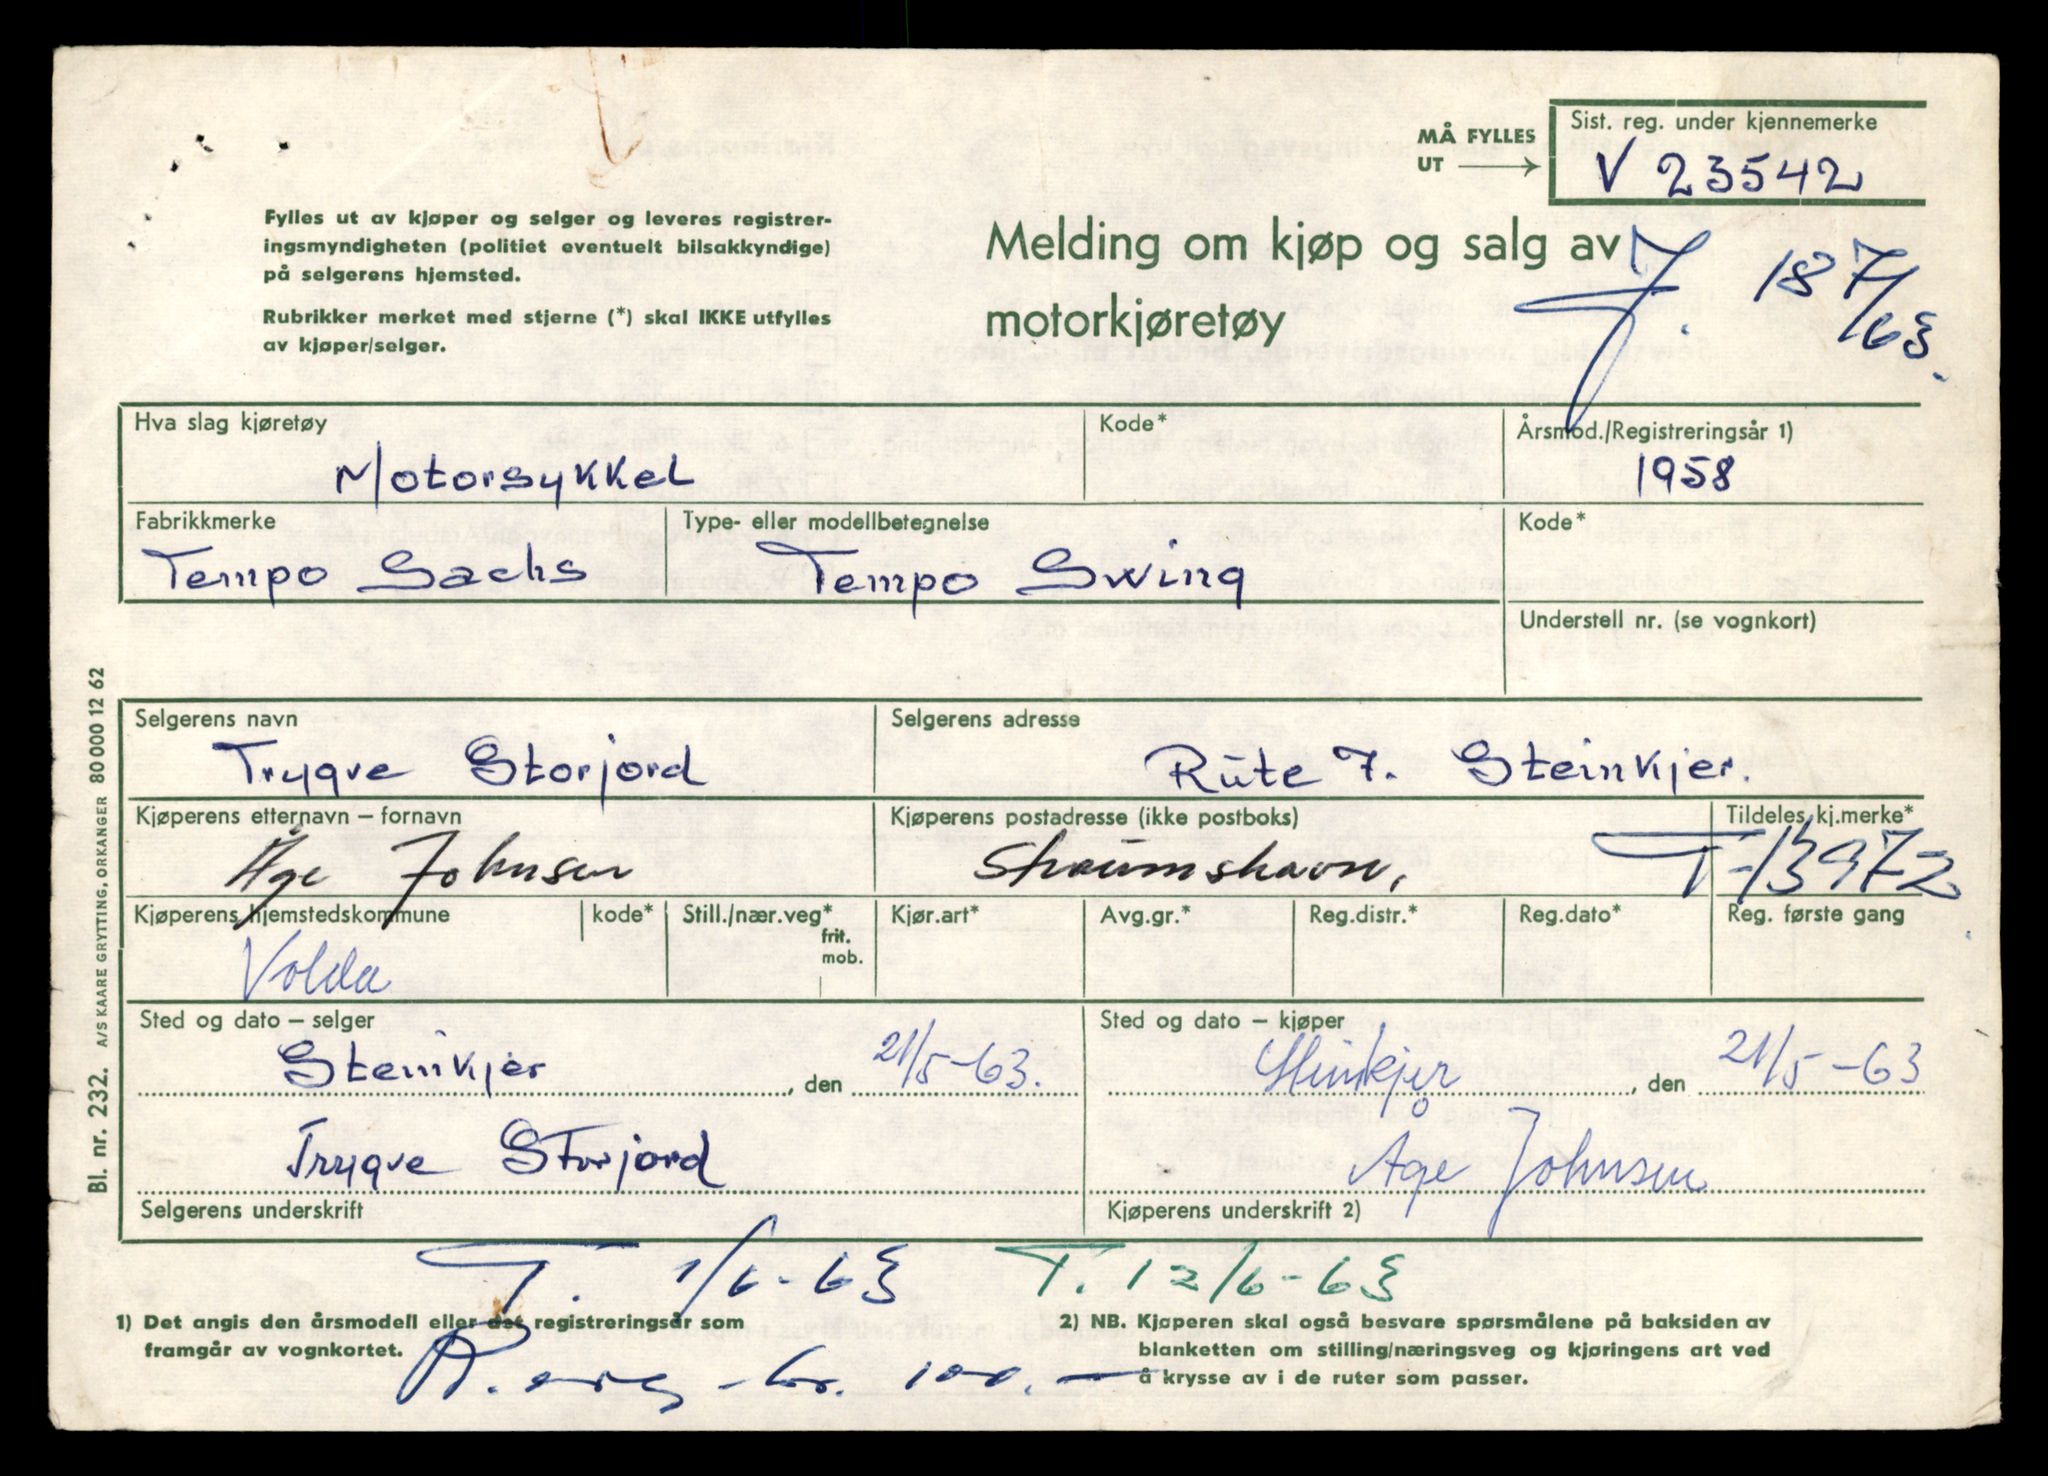 MÅ FYLLES UT
Sist. reg. under kjennemerke
V 23542
Fylles ut av kjøper og selger og leveres registrer-
ingsmyndigheten (politiet eventuelt bilsakkyndige)
på selgerens hjemsted.
Rubrikker merket med stjerne (*) skal IKKE utfylles
av kjøper/selger.
Melding om kjøp og salg av
motorkjøretøy
J. 18 7/63.
Hva slag kjøretøy
Motorsykkel
Kode*
Årsmod./Registreringsår 1)
1958
Fabrikkmerke
Tempo Sachs
Type- eller modellbetegnelse
Tempo Swing
Kode*
Understell nr. (se vognkort)
Selgerens navn
Trygve Storjord
Selgerens adresse
Rute 7. Steinkjer.
Kjøperens etternavn – fornavn
Åge Johnsen
Kjøperens postadresse (ikke postboks)
Tildeles kj.merke*
T-13972
Kjøperens hjemstedskommune
Volda
kode*
Still./nær.veg*
frit.
mob.
Kjør.art*
Avg.gr.*
Reg.distr.*
Reg.dato*
Reg. første gang
Sted og dato – selger
Steinkjer, den 21/5-63.
Sted og dato – kjøper
Steinkjer, den 21/5-63
Trygve Storjord
Selgerens underskrift
Åge Johnsen
Kjøperens underskrift 2)
T. 1/6-63
T. 12/6-63
1) Det angis den årsmodell eller det registreringsår som
framgår av vognkortet.
kr. 100.-
2) NB. Kjøperen skal også besvare spørsmålene på baksiden av
blanketten om stilling/næringsveg og kjøringens art ved
å krysse av i de ruter som passer.
Bl. nr. 232. A/S KAARE GRYTTING, ORKANGER 80 000 12 62